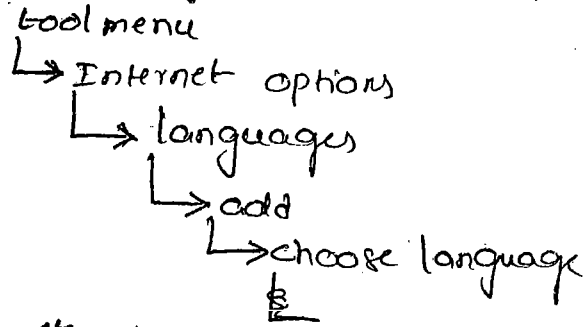 tool menu
Internet options
languages
add
choose language